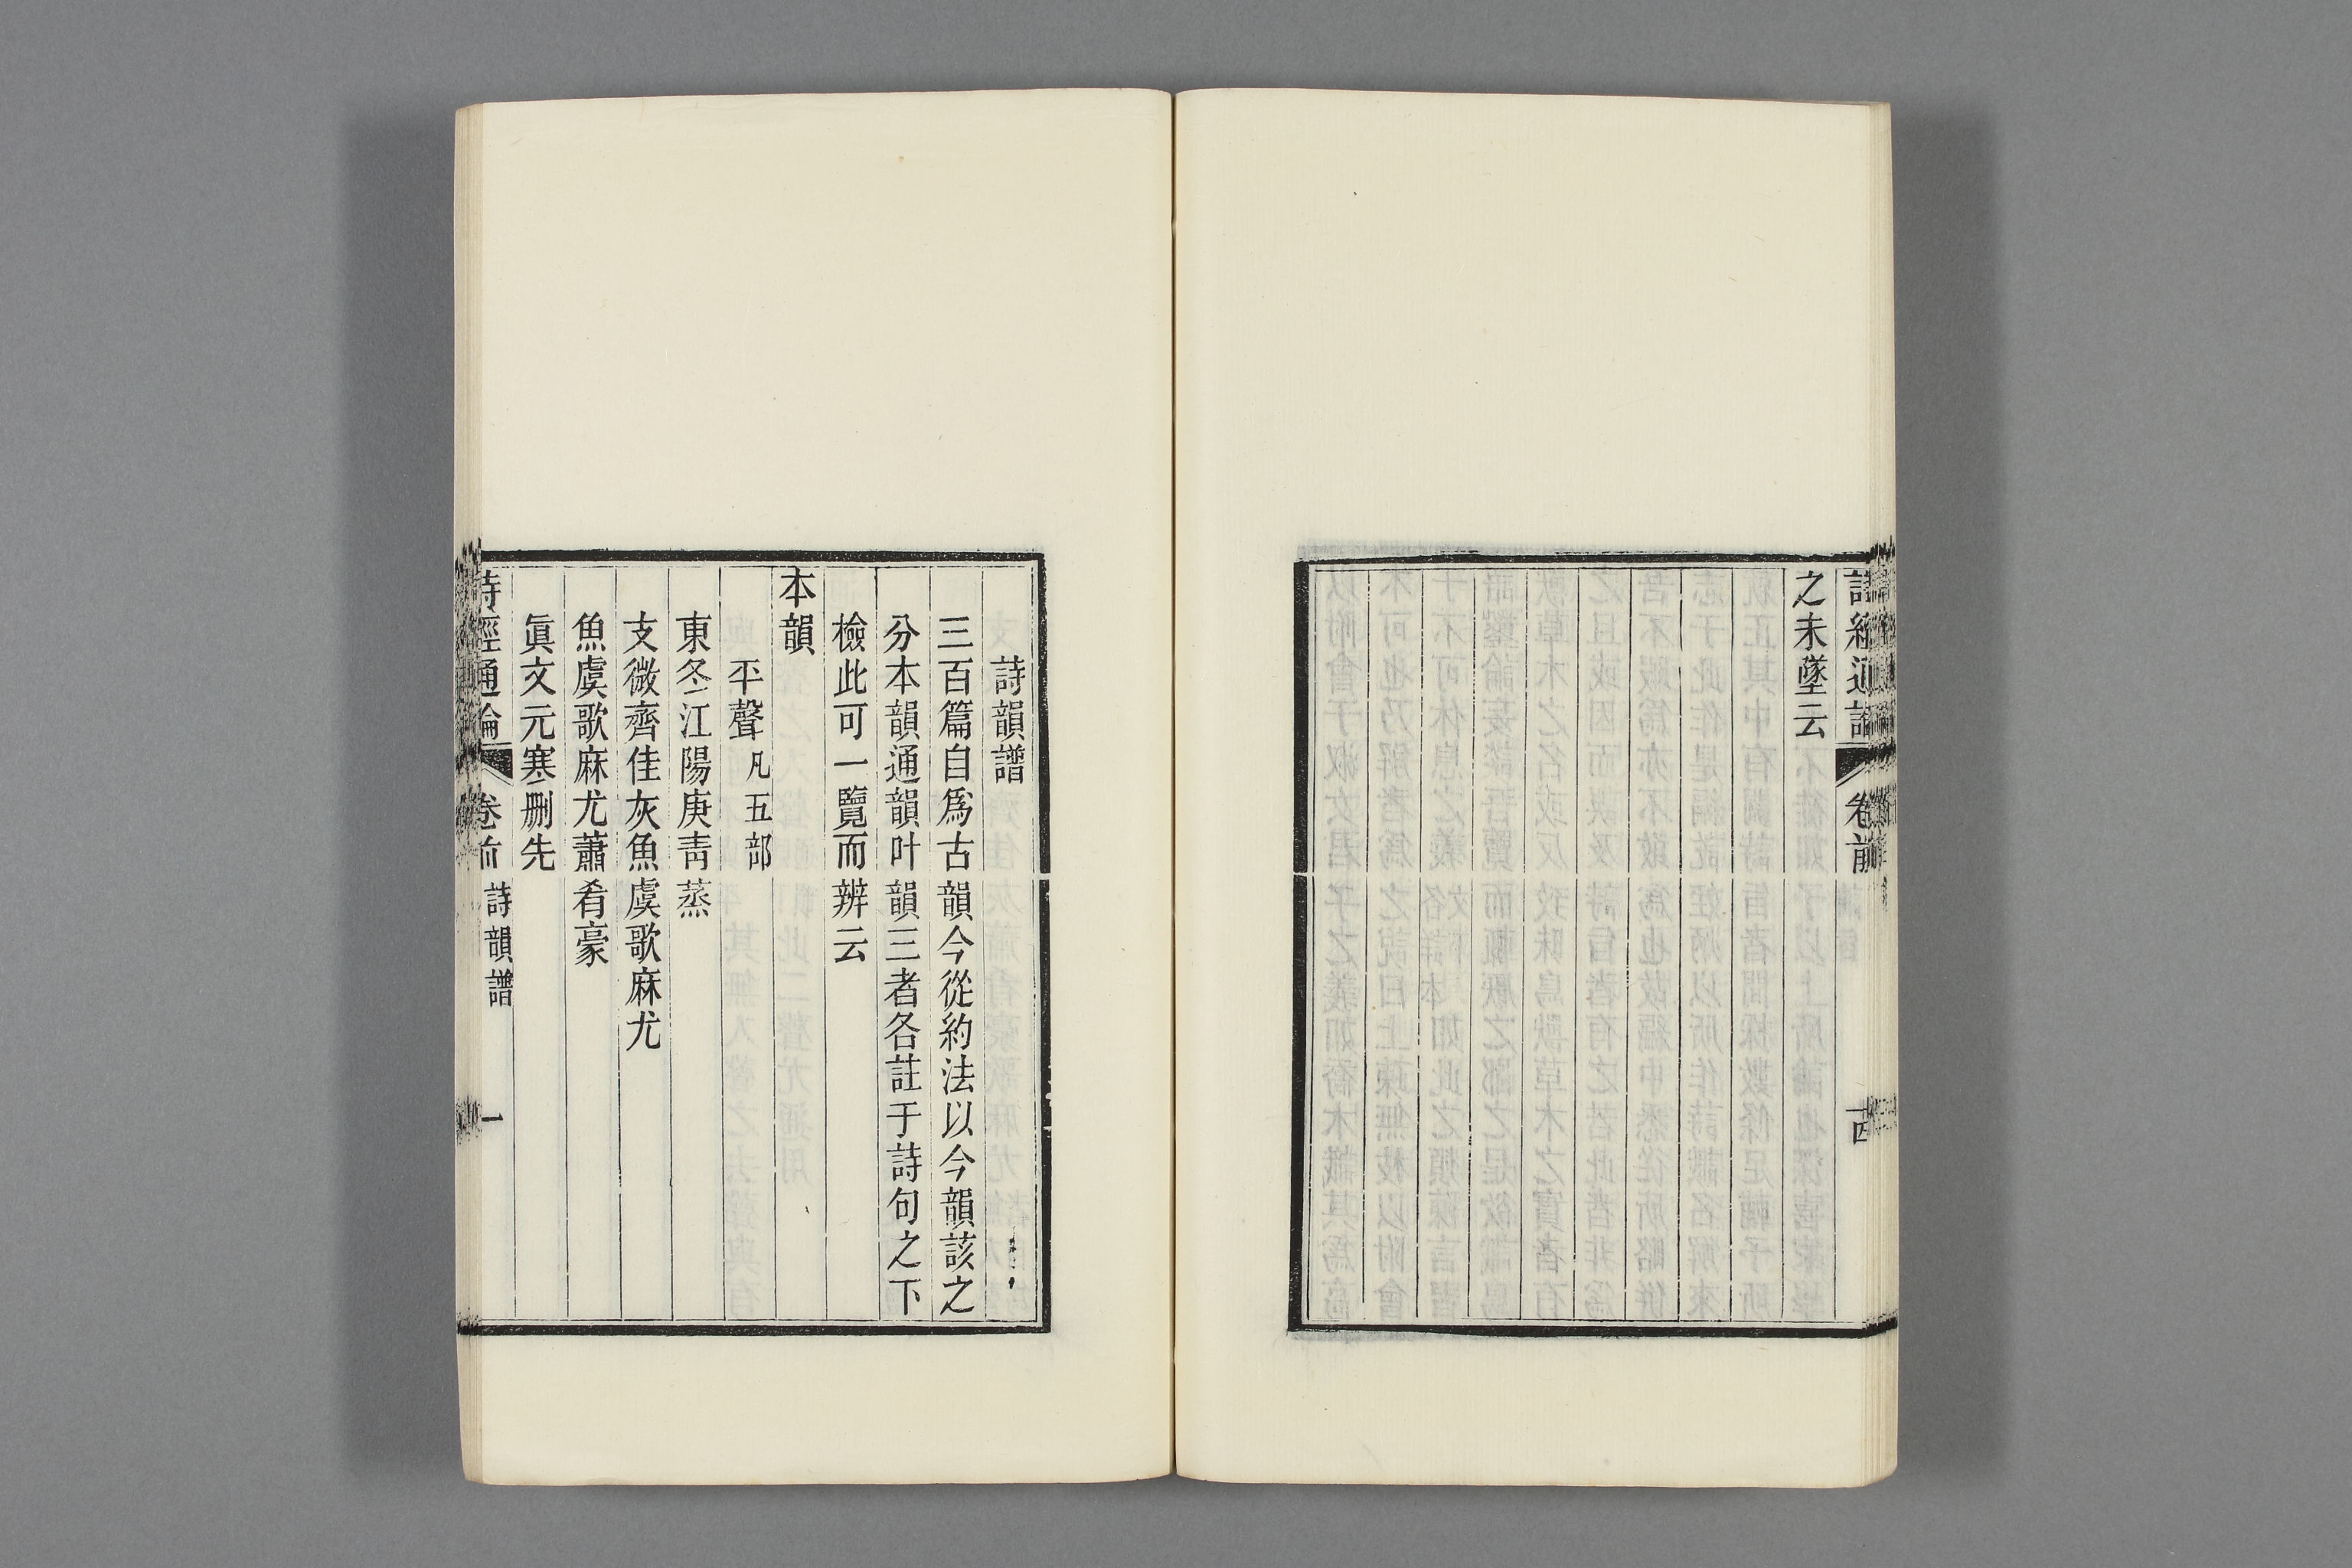 詩經通論 卷前 十四
之未墜云
詩韻譜
三百篇自爲古韻今從約法以今韻該之
分本韻通韻叶韻三者各註于詩句之下
檢此可一覽而辨云
本韻
平聲凡五部
東冬江陽庚靑蒸
支微齊佳灰魚虞歌麻尤
魚虞歌麻尤蕭肴豪
眞文元寒刪先
詩經通論 卷前 詩韻譜 一